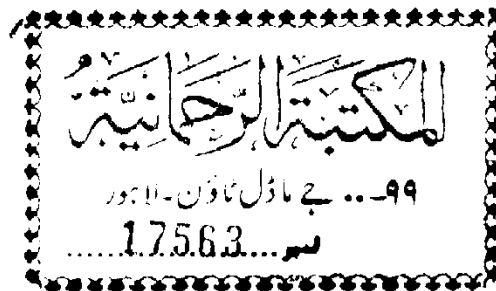 المكتبة الرحمانية
۹۹۔۔۔ جے ماڈل ٹاؤن۔ لاہور
نمبر....17563....